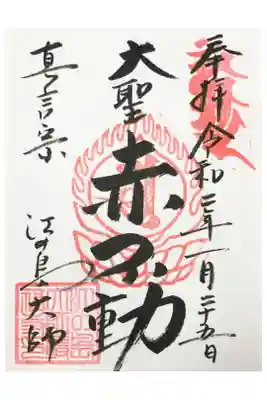 奉拝 令和三年一月二十五日
大聖
赤不動
真言宗
江の島大師